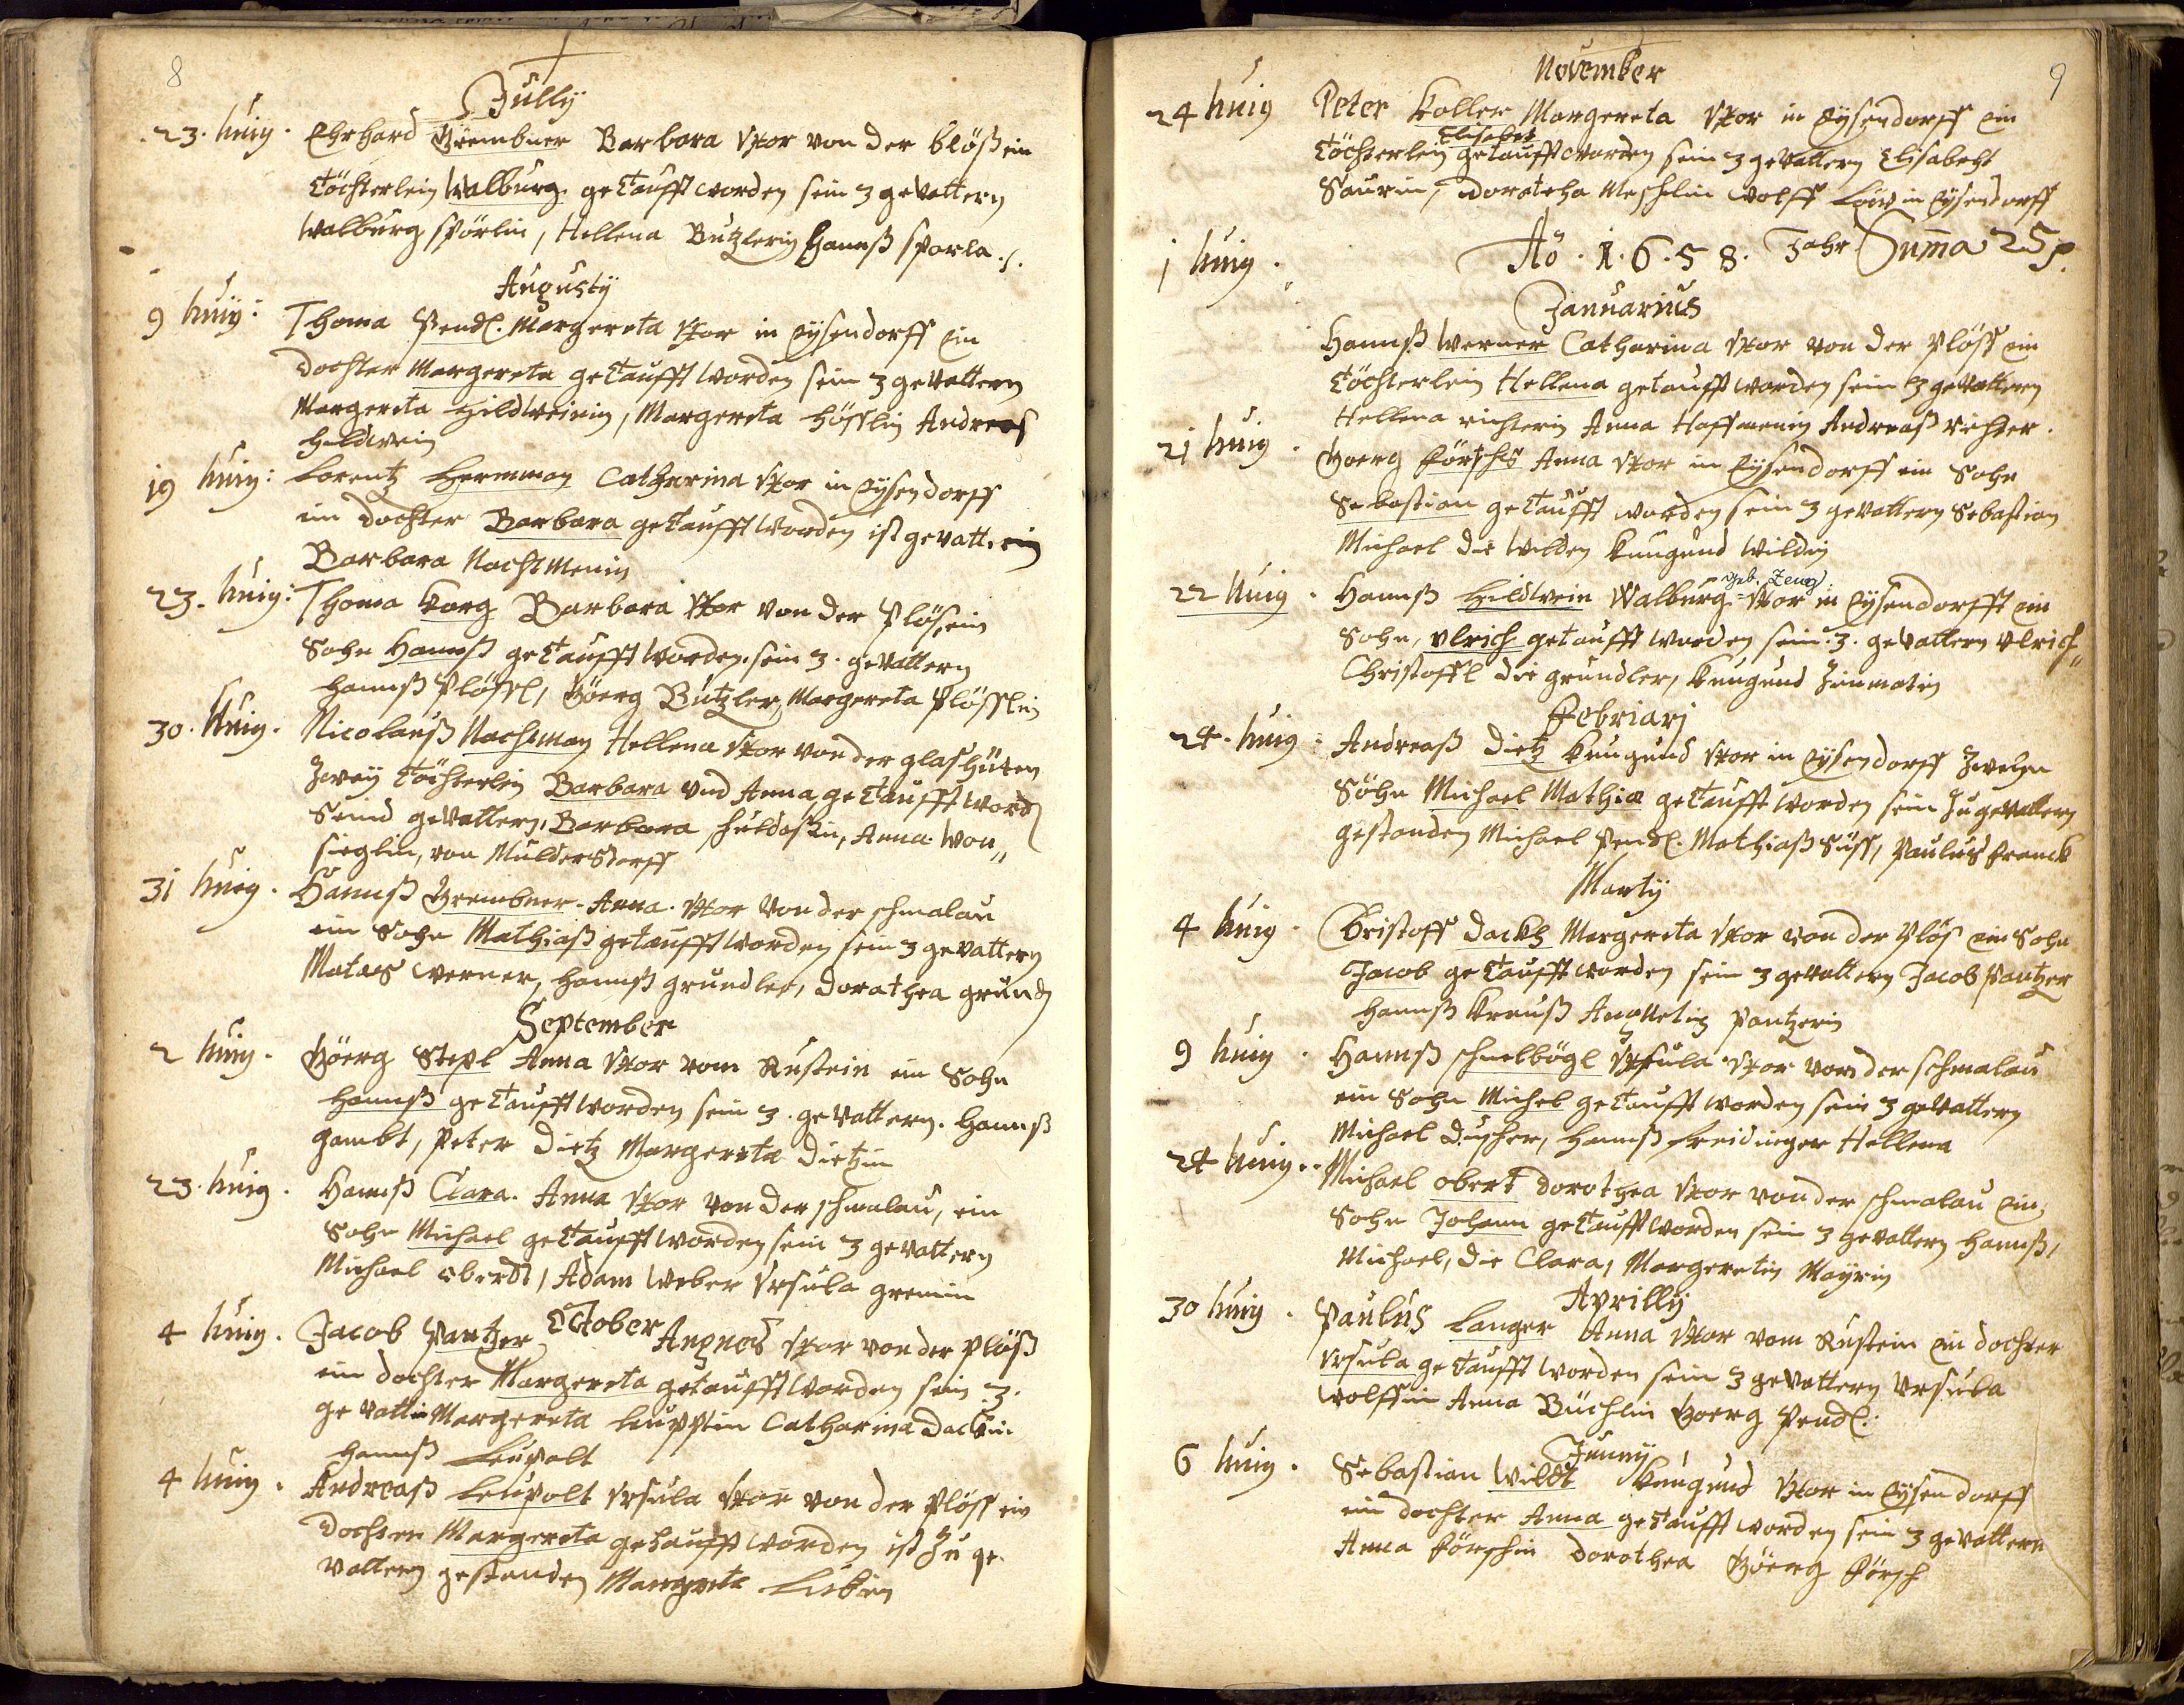 8
Jully
23. huig. Ehrhard Grembner Barbara uxor von der blöß ein
Töchterlein Walburg getaufft worden sein 3 gevattern
Walburg spörlin, Hellena Butzlerin Hannß sporla.
Augusty
9 huig: Thoma Pendl. Margereta uxor in Eysendorff ein
Dochter Margereta getaufft worden sein 3 gevattern
Margereta Hildweinin, Margereta hösslin Andreas
hildwein
19 huig: Lorentz Hermman Catharina uxor in Eysendorff
ein Dochter Barbara getaufft worden ist gevatterin
Barbara Nachtmenin
23. huig: Thoma karg Barbara uxor von der Plös, ein
Sohn Hannß getaufft worden. sein 3. gevattern
Hannß Plössl, Göerg Butzler, Margereta Plösslin
30. huig. Nicolauß Nachtman Hellena uxor von der glashüten
Zwey Töchterlein Barbara und Anna getaufft word
Seind gevattern, Barbara Anna Won„
sieglin, von Muldersdorff
31 huig. Hannß Grembner. Anna. uxor von der schmalau
ein Sohn Mathiaß getaufft worden sein 3 gevattern
Mataes Werner, Hannß grundler, Dorathea grund
September
2 huig. Göerg Stepl Anna uxor vom Rustein ein Sohn
Hannß getaufft worden sein 3. gevattern. Hannß
Gambt, Peter Dietz Margereta Dietzin
23. huig. Hannß Clara. Anna uxor von der schmalau, ein
Sohn Michael getaufft worden sein 3 gevattern
Michael oberdt, Adam Weber Ursula gremin
October
4 huig. Jacob Pantzer Angnes uxor von der Plöß
ein Dochter Margereta getaufft worden sein 3.
gevattin Margereta leupplin Catharina Dackin
Hannß Leupolt
4 huig. Andreaß Leupolt Ursula uxor von der Plöss ein
Dochter Margereta getaufft worden ist zu ge
vattern gestanden Margreta
9
November
24 huig Peter koller Margereta uxor in Eysendorff ein
Elisabet
Töchterlein getaufft worden sein 3 gevattern Elisabeht
Saurin, Dorateha Meschelin Wolff Löw in Eysendorff
1 huig. Aō. 1.6.58. Jahr Suma 25 p.
Januarius
Hannß Werner Catharina uxor von der Plöss ein
Töchterlein Hellena getaufft worden sein 3 gevattern
Hellena richterin Anna Hoffmenin Andreaß richter.
21 huig. Goerg Förtschs Anna uxor in Eysendorff ein Sohn
Sebastian getaufft worden sein 3 gevattern Sebastian
Michael die Wilden kungund Wildin
geb. Zeug
22 huig. Hannß Hildwein Walburg uxor in Eysendorfft ein
Sohn, Ulrich getaufft worden sein. 3. gevattern Ulrich„
Christoffl die gründler, kungund
Febriarj
24. huig: Andreaß Dietz kungund uxor in Eysendorff Zwehn
Söhn Michael Mathia getaufft worden sein Zu gevattern
gestanden Michael Pendl. Mathiaß Süss, Paulus Franck
Marty
4 huig. Cristoff Dackh Margereta uxor von der Plös ein Sohn
Jacob getaufft worden sein 3 gevattern Jacob Pantzer
Hannß krauß Pantzerin
9 huig. Hannß schnelbögl Ursula uxor von der schmalau
ein Sohn Michel getaufft worden sein 3 gevattern
Michael Duscher, Hannß Freidinger Hellena
24 huig.. Michael obert Dorothea uxor von der schmalau ein,
Sohn Johann getaufft worden sein 3 gevattern Hannß,
Michael, die Clara, Margeretin Mayrin
Aprilly
30 huig. Paulus Langer Anna uxor vom Rustein ein Dochter
Ursula getaufft worden sein 3 gevattern Ursula
Wolffin Anna Büchlin Goerg Pendl.
Junny
6 huig. Sebastian Wildt kungund uxor in Eysendorff
ein Dochter Anna getaufft worden sein 3 gevattern
Anna Förschin Dorothea Göerg Försch